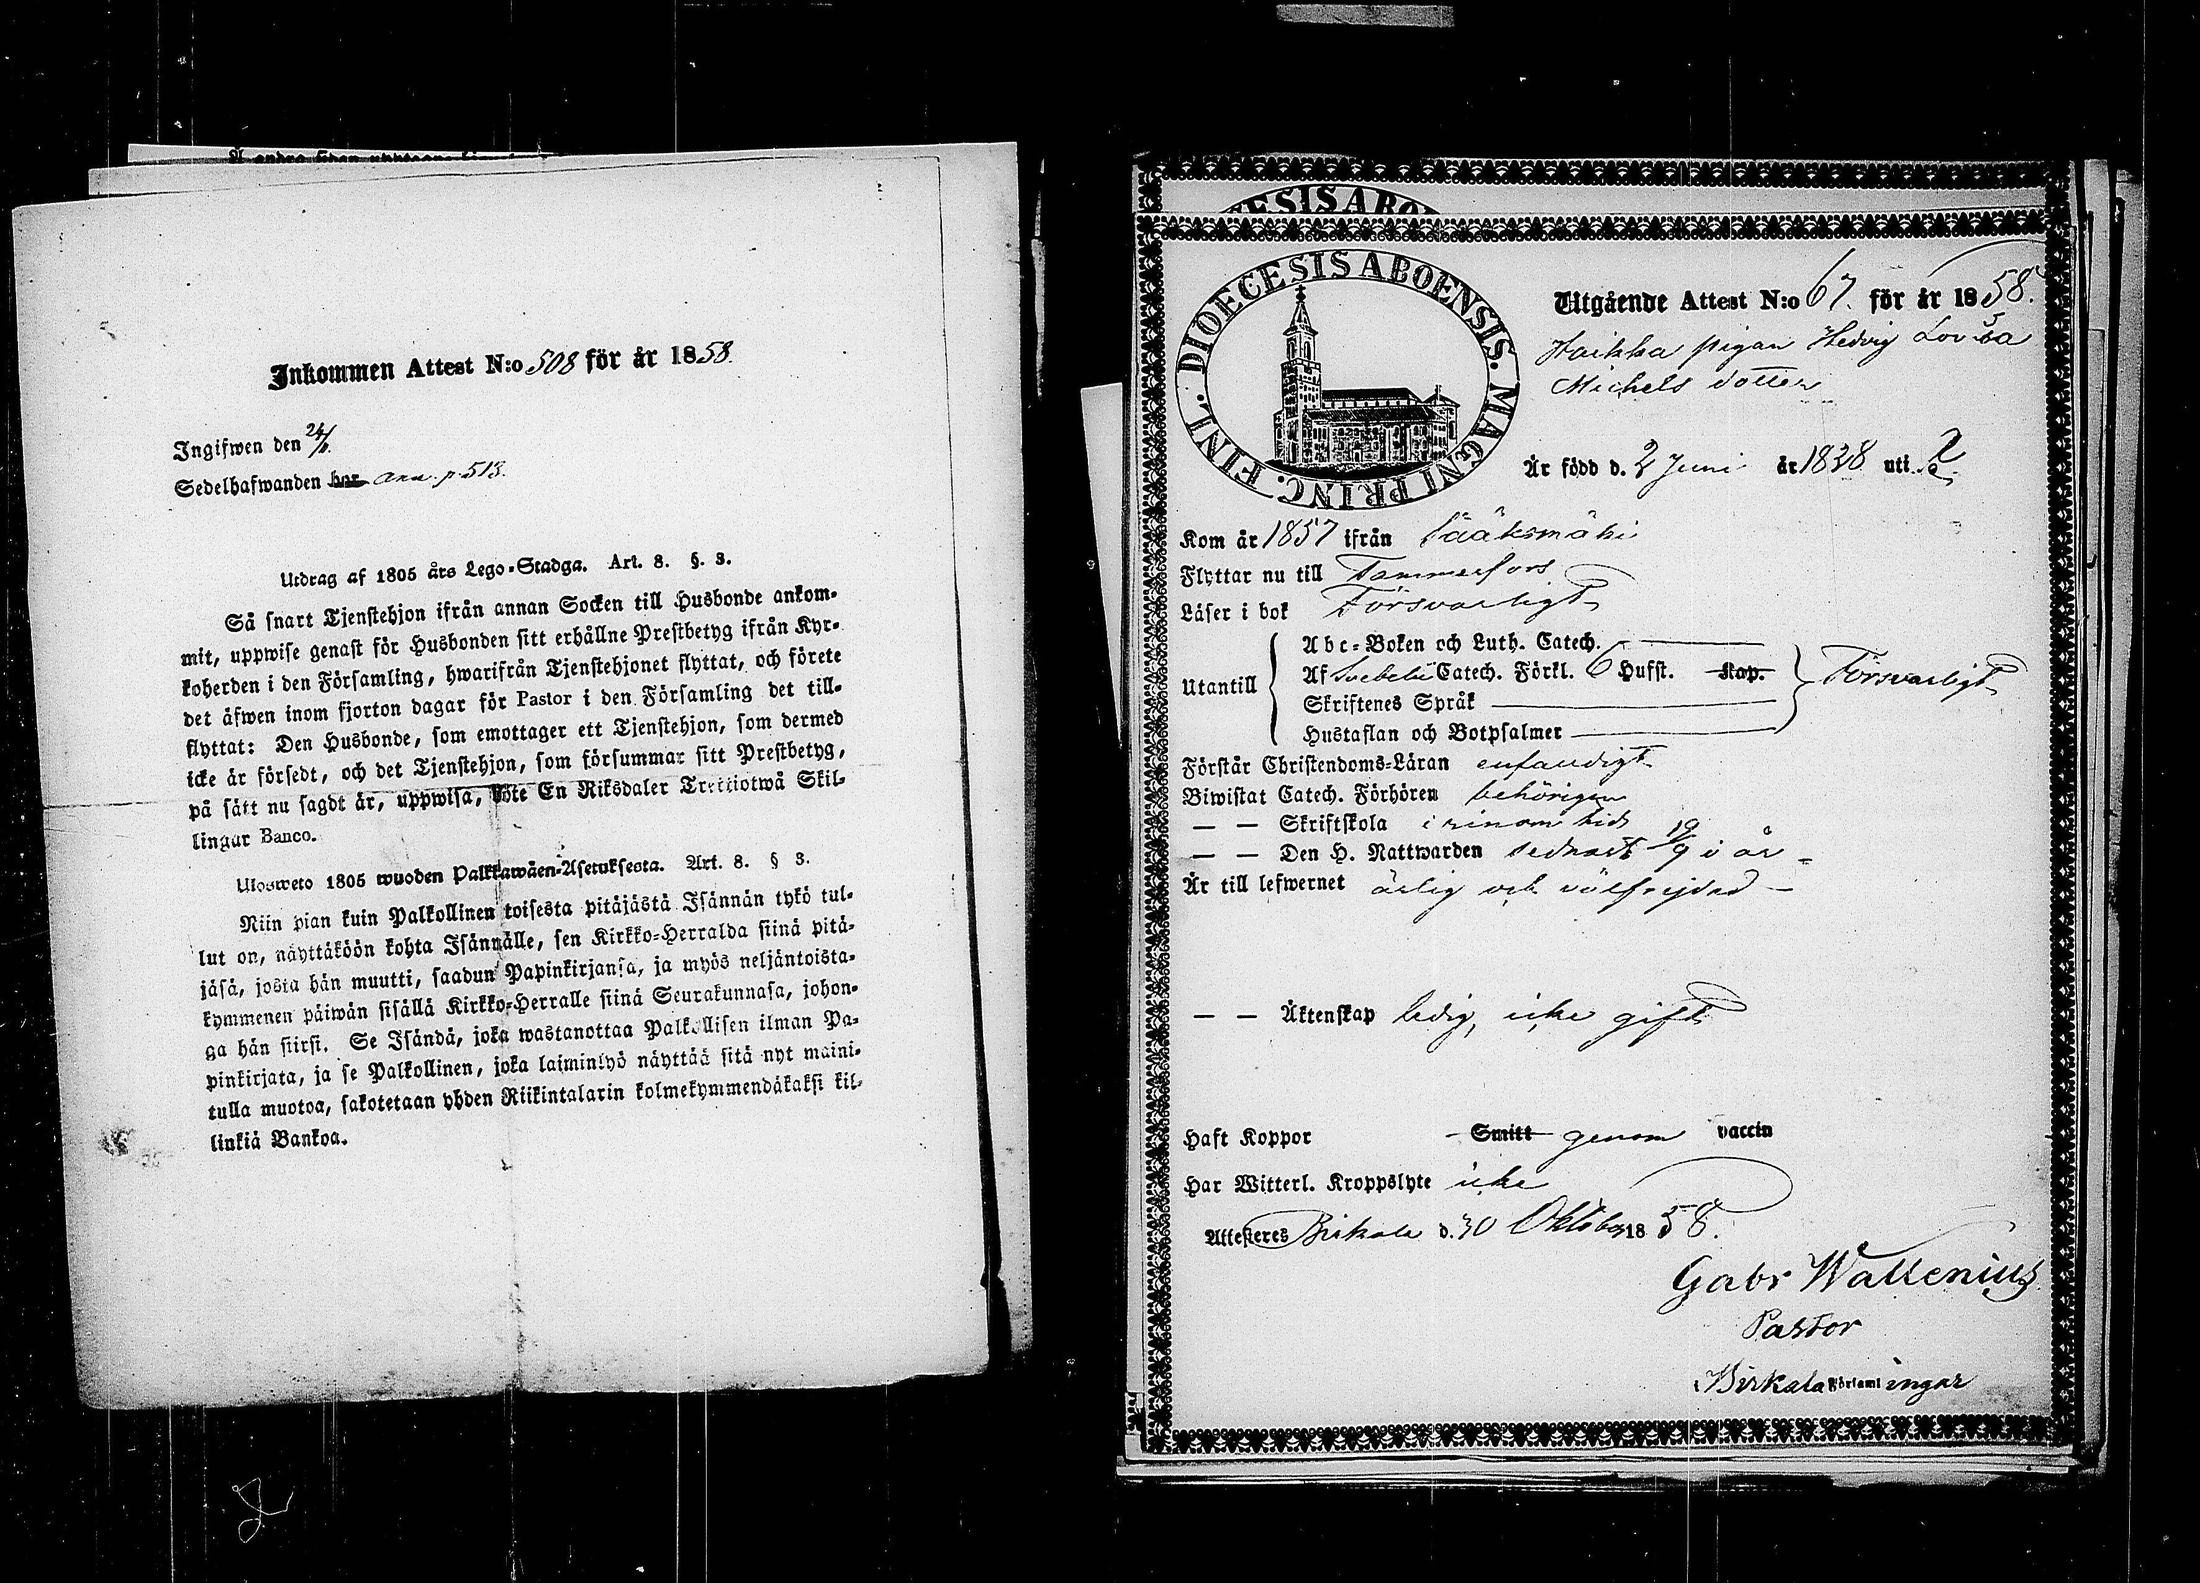 Inkommen Attest N:o 508 för år 1858.
Ingifwen den 24/11.
Sedelhafwanden har ann. p. 513.
Utdrag af 1805 års Lego-Stadga. Art. 8. §. 3.
Så snart Tjenstehjon ifrån annan Socken till Husbonde ankom-
mit, uppwise genast för Husbonden sitt erhållne Prestbetyg ifrån Kyr-
koherden i den Församling, hwarifrån Tjenstehjonet flyttat, och förete
det äfwen inom fjorton dagar för Pastor i den Församling det till-
flyttat: Den Husbonde, som emottager ett Tjenstehjon, som dermed
icke är försedt, och det Tjenstehjon, som försummar sitt Prestbetyg,
på sätt nu sagdt är, uppwisa, böte En Riksdaler Trettiotwå Skil-
lingar Banco.
Ulosweto 1805 wuoden Palkkawäen-Asetuksesta. Art. 8. § 3.
Niin pian kuin Palkollinen toisesta pitäjästä Isännän tykö tul-
lut on, näyttäköön kohta Isännälle, sen Kirkko-Herralda siinä pitä-
jäsä, josta hän muutti, saadun Papinkirjansa, ja myös neljäntoista-
kymmenen päiwän sisällä Kirkko-Herralle siinä Seurakunnasa, johon-
ga hän siirsi. Se Isändä, joka wastanottaa Palkollisen ilman Pa-
pinkirjata, ja se Palkollinen, joka laiminlyö näyttää sitä nyt maini-
tulla muotoa, sakotetaan yhden Riikintalarin kolmekymmendäkaksi kil-
linkiä Bankoa.
DIOECESIS ABOENSIS. MAGNI PRINC. FINL.
Utgående Attest N:o 67. för år 1858.
Haikka pigan Hedvig Lovisa
Michels dotter
Är född d. 2 Juni år 1838 uti
Kom år 1857 ifrån Sääksmäki
Flyttar nu till Tammerfors
Läser i bok Försvarligt
Utantill
Abc-Boken och Luth. Catech.
Af Svebelii Catech. Förkl. 6 Hufst. Kap. Försvarligt
Skriftenes Språk
Hustaflan och Botpsalmer
Förstår Christendoms-Läran enfaldigt
Biwistat Catech. Förhören behörigen
— — Skriftskola i sinom tid
— — Den H. Nattwarden sednast 19/9 i år
Är till lefwernet ärlig och välfrejdad
— — Äktenskap ledig, icke gift
Haft Koppor Smitt genom vaccin
Har Witterl. Kroppslyte icke
Attesteres Birkala d. 30 Oktober 1858.
Gabr Wallenius
Pastor
i Birkala Församlingar